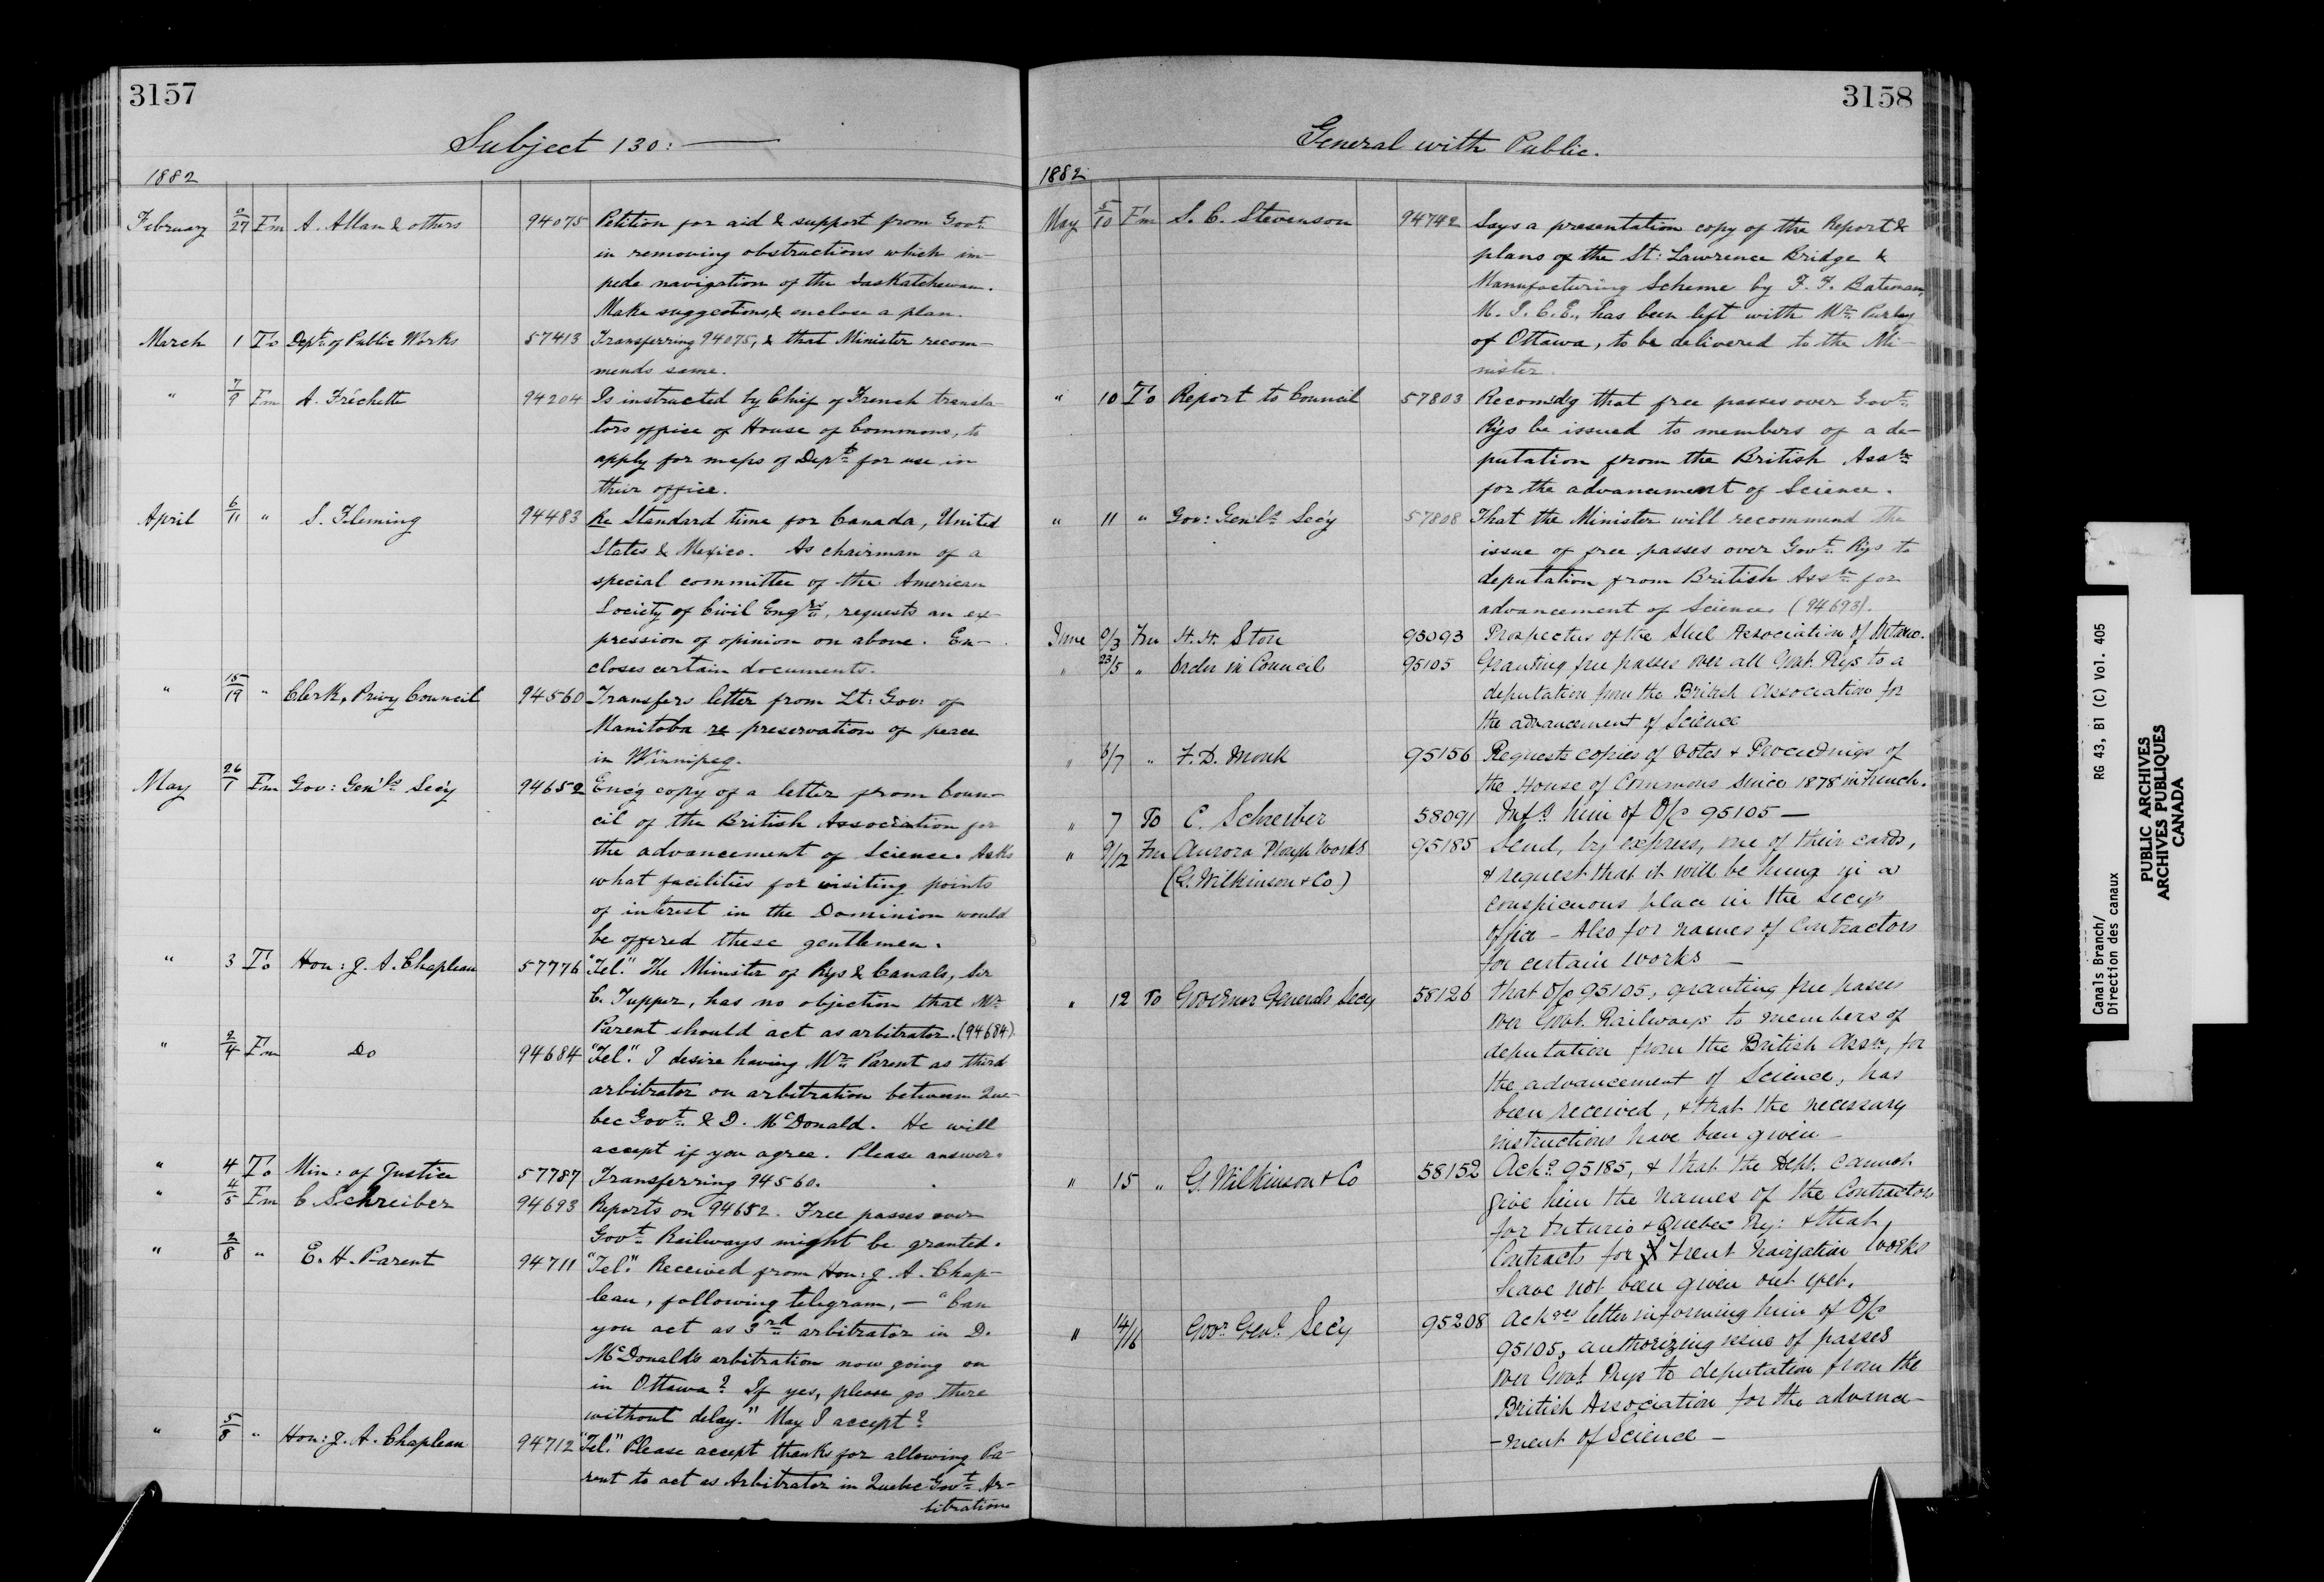 3157
Subject 130:
1882
February 9/27 Fm A. Allan & others 94075 Petition for aid & support from Govt.
in removing obstructions which im-
pede navigation of the Saskatchewan.
Make suggestions, & enclose a plan.
March 1 To Dept. of Public Works 57413 Transferring 94075, & that Minister recom-
mends same.
" 7/9 Fm A. Fréchette 94204 Is instructed by Chief of French transla-
tors office of House of Commons, to
apply for maps of Dept. for use in
their office.
April 6/11 " S. Fleming 94483 Re Standard time for Canada, United
States & Mexico. As chairman of a
special committee of the American
Society of Civil Engrs., requests an ex-
pression of opinion on above. En-
closes certain documents.
" 15/19 " Clerk, Privy Council 94560 Transfers letter from Lt: Gov: of
Manitoba re preservation of peace
in Winnipeg.
May 26/1 Fm Gov: Genl's Secy 94652 Enc'g copy of a letter from Coun-
cil of the British Association for
the advancement of Science. Asks
what facilities for visiting points
of interest in the Dominion would
be offered these gentlemen.
" 3 To Hon: J. A. Chapleau 57776 "Tel." The Minister of Rys & Canals, Sir
C. Tupper, has no objection that Mr.
Parent should act as arbitrator. (94684)
" 2/4 Fm Do 94684 "Tel." I desire having Mr. Parent as third
arbitrator on arbitration between Que-
bec Govt. & D. McDonald. He will
accept if you agree. Please answer.
" 4 To Min: of Justice 57787 Transferring 94560.
" 4/5 Fm C Schreiber 94693 Reports on 94652. Free passes over
Govt. Railways might be granted.
" 2/8 " E. H. Parent 94711 "Tel." Received from Hon: J. A. Chap-
leau, following telegram, — "Can
you act as 3rd arbitrator in D.
McDonald's arbitration now going on
in Ottawa? If yes, please go there
without delay." May I accept?
" 5/8 " Hon: J. A. Chapleau 94712 "Tel." Please accept thanks for allowing Pa-
rent to act as Arbitrator in Quebec Govt. Ar-
bitration
3158
General with Public.
1882
May 5/10 Fm S. C. Stevenson 94742 Says a presentation copy of the Report &
plans of the St: Lawrence Bridge &
Manufacturing Scheme by F. F. Bateman,
M. I. C. E., has been left with Mr.
of Ottawa, to be delivered to the Mi-
nister.
" 10 To Report to Council 57803 Recomd'g that free passes over Govt.
Rys be issued to members of a de-
putation from the British Assn.
for the advancement of Science.
" 11 " Gov: Genl's Secy 57808 That the Minister will recommend the
issue of free passes over Govt. Rys to
deputation from British Assn. for
advancement of Science. (94693).
June 9/3 Fm H. H. Stone 95093 Prospectus of the Steel Association of Ontario.
" 23/5 " Order in Council 95105 Granting free passes over all Govt. Rys to a
deputation from the British Association for
the advancement of Science
" 6/7 " F. D. Monk 95156 Requests copies of Votes & Proceedings of
the House of Commons since 1878 in French.
" 7 To C. Schreiber 58091 Infg him of O/C 95105 —
" 9/12 Fm Aurora Plough Works 95185 Send, by express, one of their cards,
(G. Wilkinson & Co.) & request that it will be hung in a
conspicuous place in the Secys
Office – Also for names of Contractors
for certain works —
" 12 To Governor Generals Secy 58126 That O/C 95105, granting free passes
over Govt. Railways to members of
deputation from the British Assn, for
the advancement of Science, has
been received, & that the necessary
instructions have been given —
" 15 " G. Wilkinson & Co 58152 Ackg 95185, & that the Dept. cannot
give him the names of the Contractors
for Ontario & Quebec Ry: & that
Contracts for Trent Navigation Works
have not been given out yet.
" 14/16 Govr Genl. Secy 95208 Ackges letter informing him of O/C
95105, authorizing issue of passes
over Govt. Rys to deputation from the
British Association for the advance-
-ment of Science —
Canals Branch/
Direction des canaux
RG 43, B1 (C) Vol. 405
PUBLIC ARCHIVES
ARCHIVES PUBLIQUES
CANADA